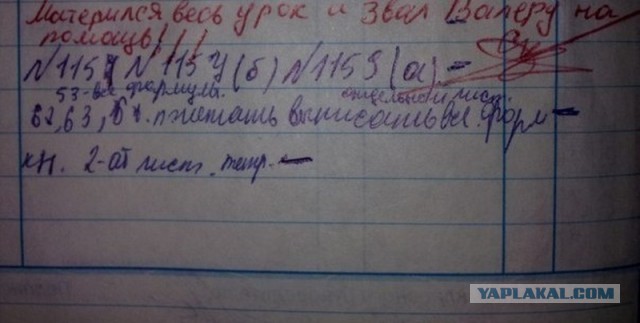 Матерился весь урок и звал Валеру на
помощь!!!
№1157 №1154(б) №1159(а) -
53-все формулы. отдельной лист.
62,63, выписать все форм -
кн. 2-ой лист. тетр. -
YAPLAKAL.COM